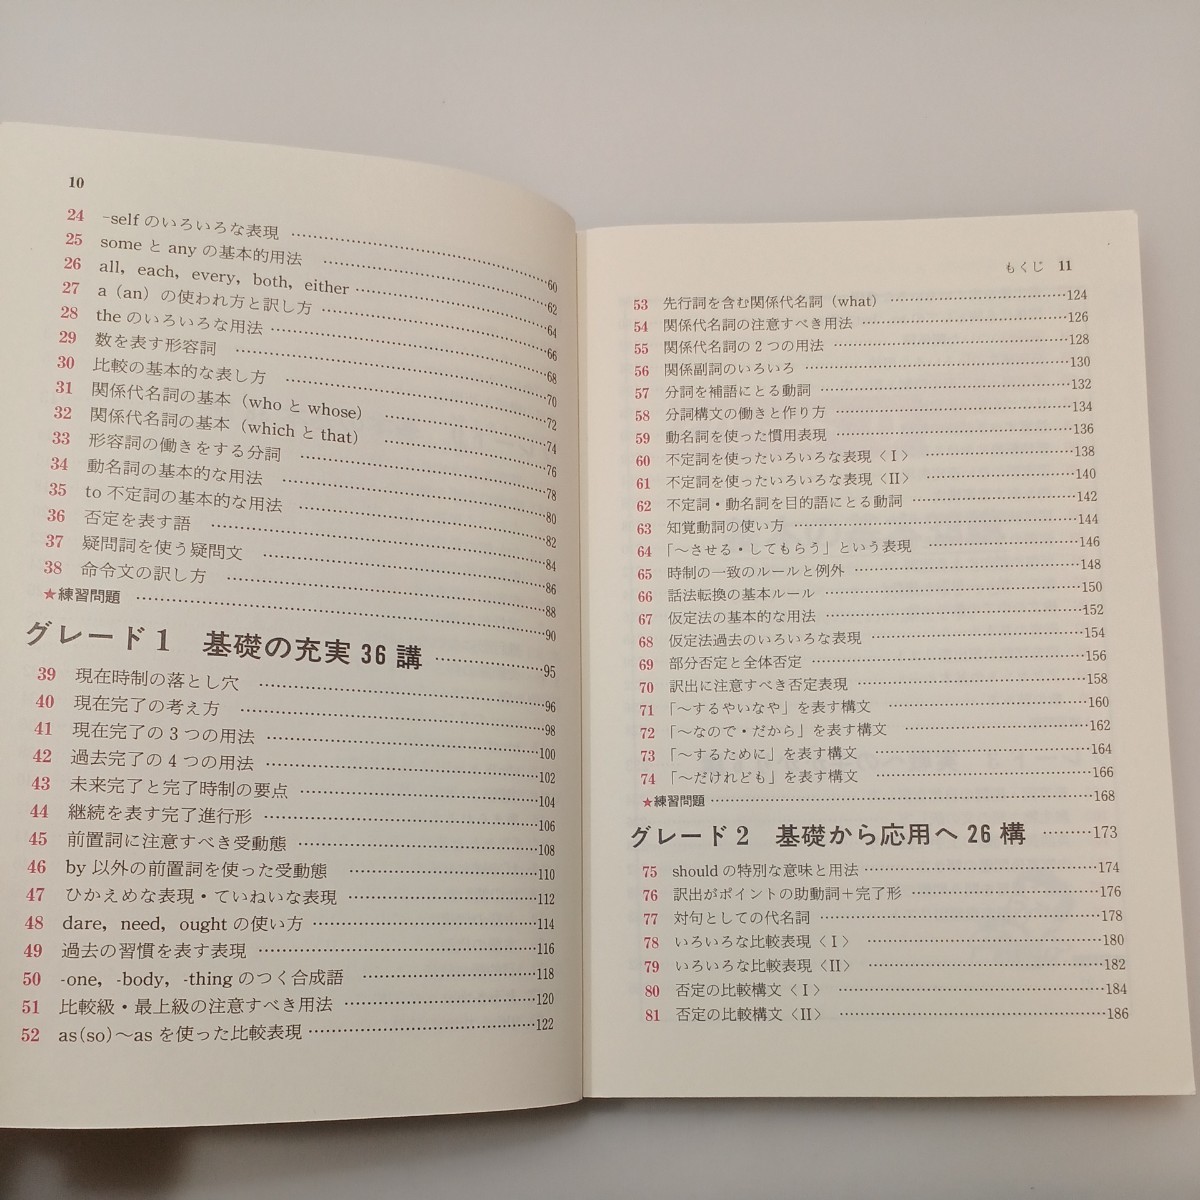 10
24 -self のいろいろな表現 ……60
25 some と any の基本的用法 ……62
26 all, each, every, both, either ……64
27 a (an) の使われ方と訳し方 ……66
28 the のいろいろな用法 ……68
29 数を表す形容詞 ……70
30 比較の基本的な表し方 ……72
31 関係代名詞の基本（who と whose） ……74
32 関係代名詞の基本（which と that） ……76
33 形容詞の働きをする分詞 ……78
34 動名詞の基本的な用法 ……80
35 to 不定詞の基本的な用法 ……82
36 否定を表す語 ……84
37 疑問詞を使う疑問文 ……86
38 命令文の訳し方 ……88
★練習問題 ……90
グレード 1 基礎の充実 36 講 ……95
39 現在時制の落とし穴 ……96
40 現在完了の考え方 ……98
41 現在完了の 3 つの用法 ……100
42 過去完了の 4 つの用法 ……102
43 未来完了と完了時制の要点 ……104
44 継続を表す完了進行形 ……106
45 前置詞に注意すべき受動態 ……108
46 by 以外の前置詞を使った受動態 ……110
47 ひかえめな表現・ていねいな表現 ……112
48 dare, need, ought の使い方 ……114
49 過去の習慣を表す表現 ……116
50 -one, -body, -thing のつく合成語 ……118
51 比較級・最上級の注意すべき用法 ……120
52 as(so)～as を使った比較表現 ……122
もくじ 11
53 先行詞を含む関係代名詞（what） ……124
54 関係代名詞の注意すべき用法 ……126
55 関係代名詞の 2 つの用法 ……128
56 関係副詞のいろいろ ……130
57 分詞を補語にとる動詞 ……132
58 分詞構文の働きと作り方 ……134
59 動名詞を使った慣用表現 ……136
60 不定詞を使ったいろいろな表現〈Ⅰ〉 ……138
61 不定詞を使ったいろいろな表現〈Ⅱ〉 ……140
62 不定詞・動名詞を目的語にとる動詞 ……142
63 知覚動詞の使い方 ……144
64 「～させる・してもらう」という表現 ……146
65 時制の一致のルールと例外 ……148
66 話法転換の基本ルール ……150
67 仮定法の基本的な用法 ……152
68 仮定法過去のいろいろな表現 ……154
69 部分否定と全体否定 ……156
70 訳出に注意すべき否定表現 ……158
71 「～するやいなや」を表す構文 ……160
72 「～なので・だから」を表す構文 ……162
73 「～するために」を表す構文 ……164
74 「～だけれども」を表す構文 ……166
★練習問題 ……168
グレード 2 基礎から応用へ 26 構 ……173
75 should の特別な意味と用法 ……174
76 訳出がポイントの助動詞＋完了形 ……176
77 対句としての代名詞 ……178
78 いろいろな比較表現〈Ⅰ〉 ……180
79 いろいろな比較表現〈Ⅱ〉 ……182
80 否定の比較構文〈Ⅰ〉 ……184
81 否定の比較構文〈Ⅱ〉 ……186